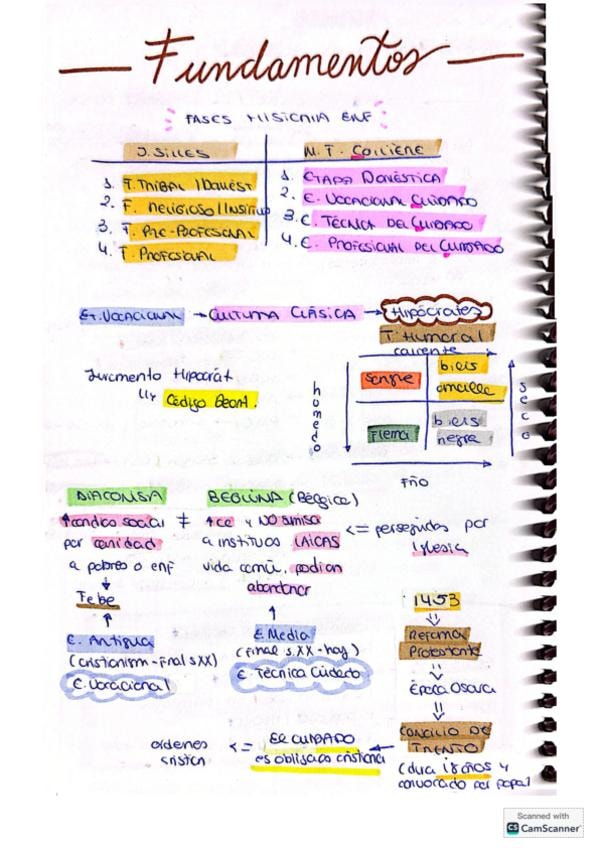 Fundamentos
FASES HISTORIA ENF
J. SILLES
M. T. COLLIÈRE
1. F. TRIBAL / DOMÉST
2. F. RELIGIOSO / INSTITU
3. F. PRE-PROFESIONAL
4. F. PROFESIONAL
1. ETAPA DOMÉSTICA
2. E. VOCACIONAL CUIDADO
3. E. TÉCNICA DEL CUIDADO
4. E. PROFESIONAL DEL CUIDADO
ET. VOCACIONAL → CULTURA CLÁSICA → Hipócrates
T. Humoral
caliente
Juramento Hipocrát
Código Deont.
húmedo
sangre
bilis
amarilla
seco
Flema
bilis
negra
Frío
DIACONISA
BEGUINA (Bélgica)
↑ condic social ≠ ↑ce y NO sumisa <= perseguidas por
por caridad a institutos LAICAS Iglesia
a pobres o enf vida comú. podían
abandonar
Febe
E. Antigua
(cristianism - final s XX)
E. Vocacional
E. Media
(final s. XX - hoy)
E. Técnica Cuidado
1453
⇓
Reforma
Protestante
⇓
Época Oscura
⇓
CONCILIO DE
TRENTO
(dura 18 años y
convocado por papa)
El CUIDADO
es obligac cristiana
<= ordenes
cristian
Scanned with
CS CamScanner